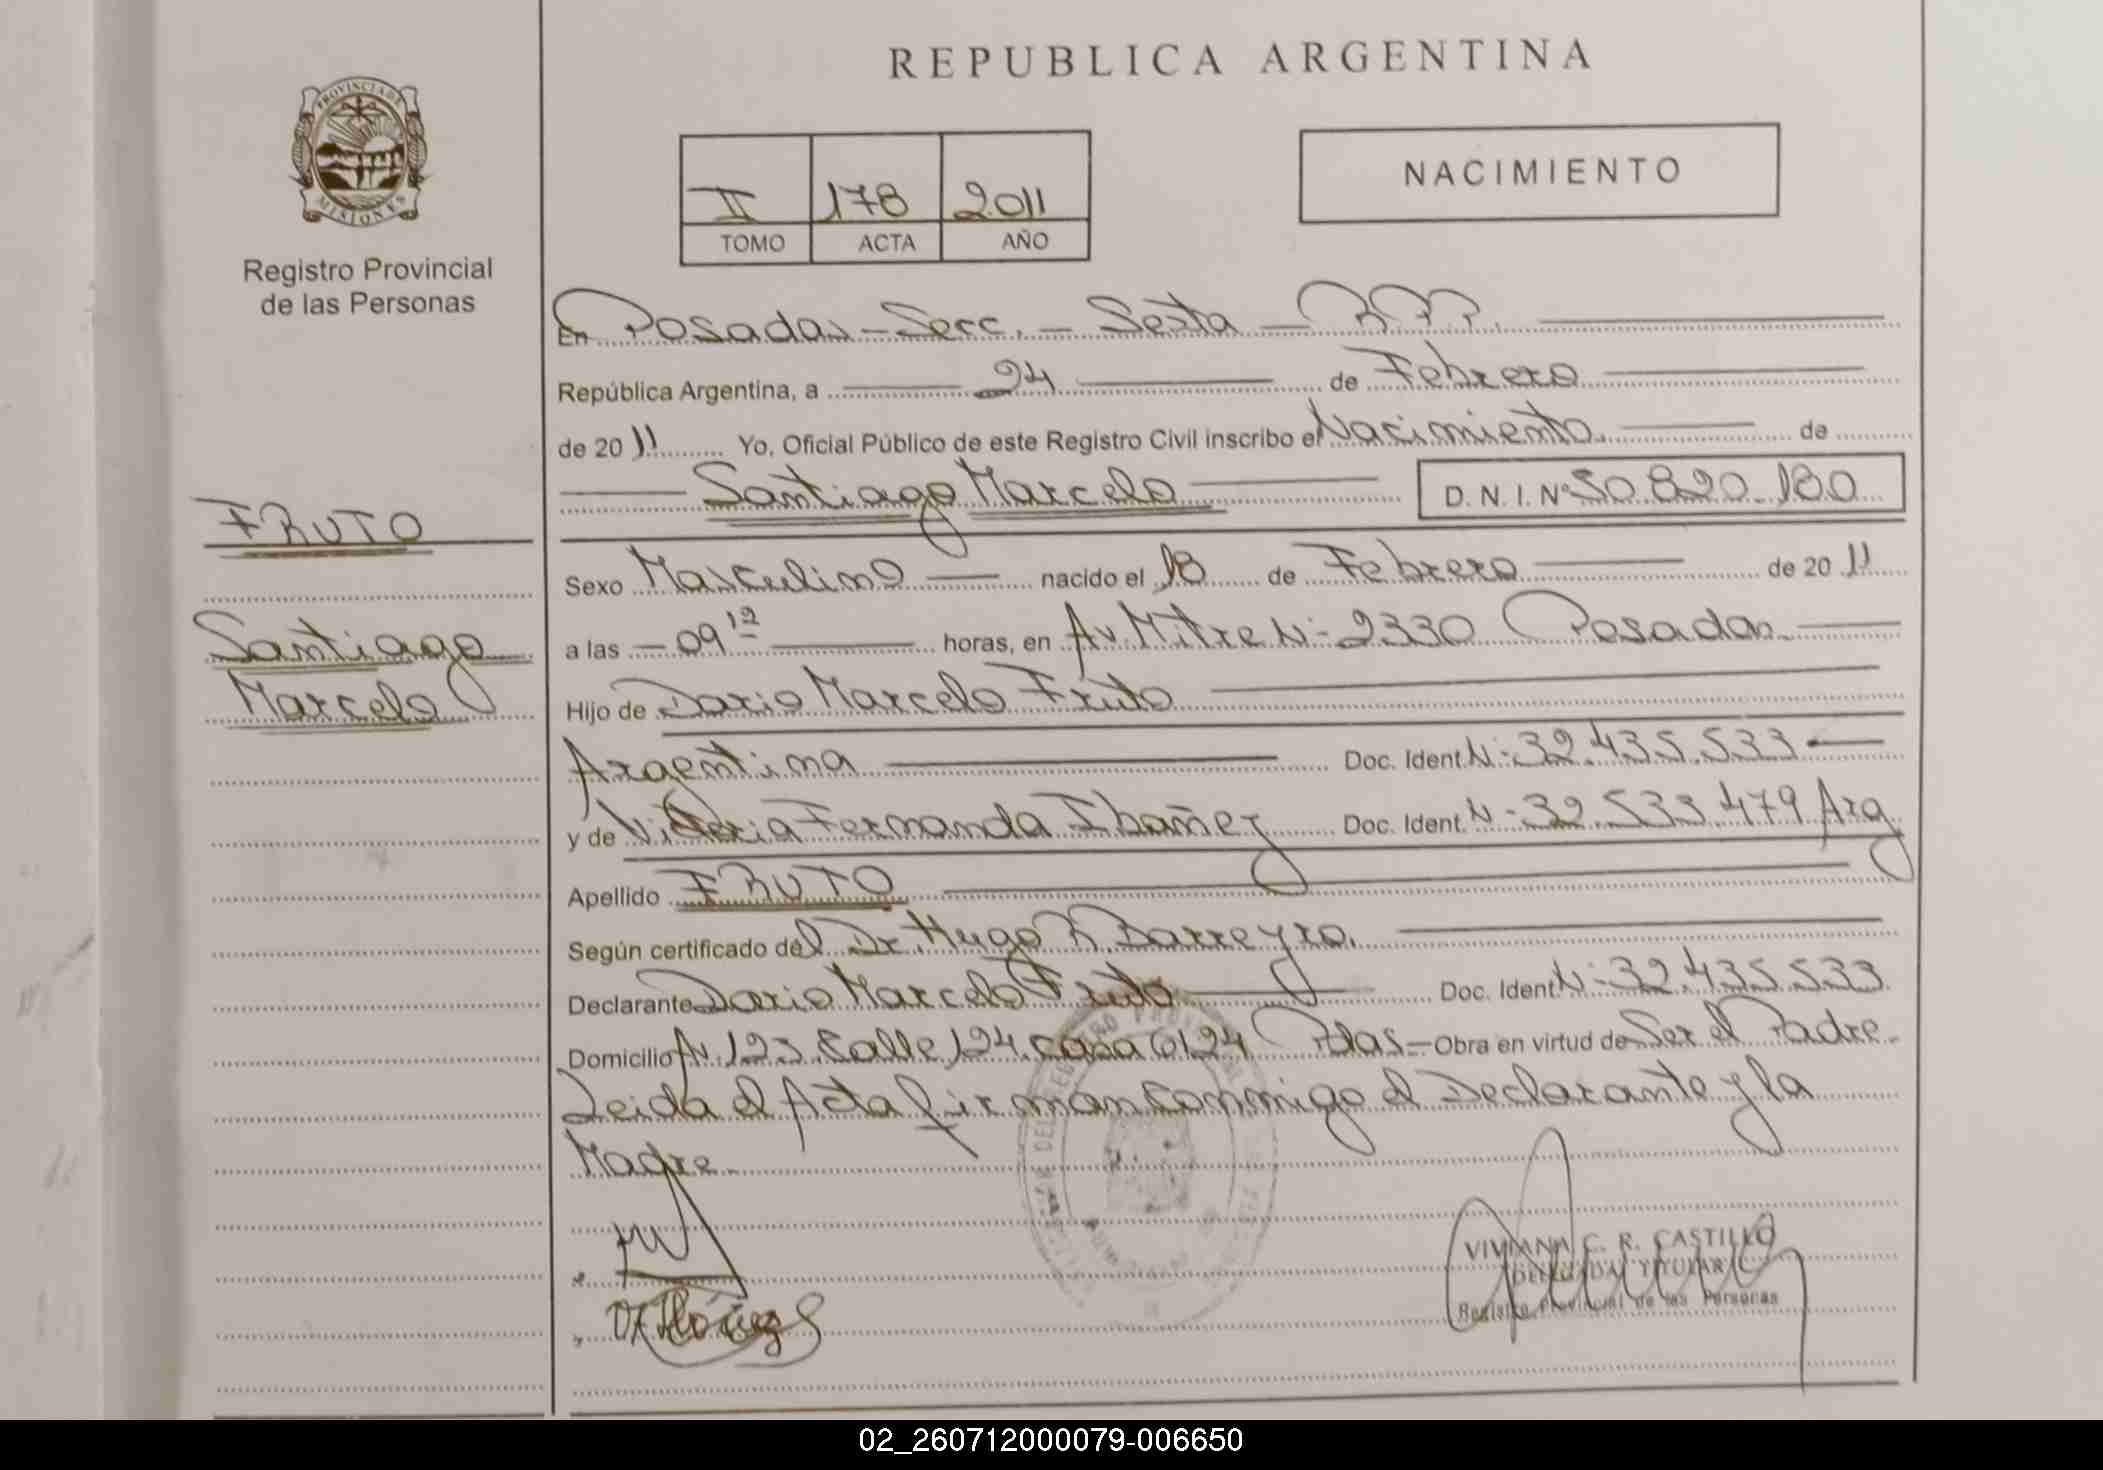 REPUBLICA ARGENTINA
PROVINCIA DE
MISIONES
Registro Provincial
de las Personas
II 178 2011
TOMO ACTA AÑO
NACIMIENTO
En Posadas - Secc. - Sexta - R.P.P.
República Argentina, a 24 de Febrero
de 2011 Yo, Oficial Público de este Registro Civil inscribo el Nacimiento de
Santiago Marcelo D.N.I. Nº 50.820.180
FRUTO
Santiago
Marcelo
Sexo Masculino nacido el 18 de Febrero de 2011
a las - 09 12 horas, en Av. Mitre Nº 2330 Posadas
Hijo de Dario Marcelo Fruto
Argentina Doc. Ident. Nº 32.435.533
y de Victoria Fernanda Ibañez Doc. Ident. Nº 32.533.479 Arg
Apellido FRUTO
Según certificado del Dr. Hugo R Barreyro.
Declarante Dario Marcelo Fruto Doc. Ident. Nº 32.435.533
Domicilio Av. 123 Calle 124 casa 6124 Pdas - Obra en virtud de Ser el Padre.
Leida el Acta firman conmigo el Declarante y la
Madre.
VIVIANA C. R. CASTILLO
DELEGADA TITULAR
Registro Provincial de las Personas
02_260712000079-006650